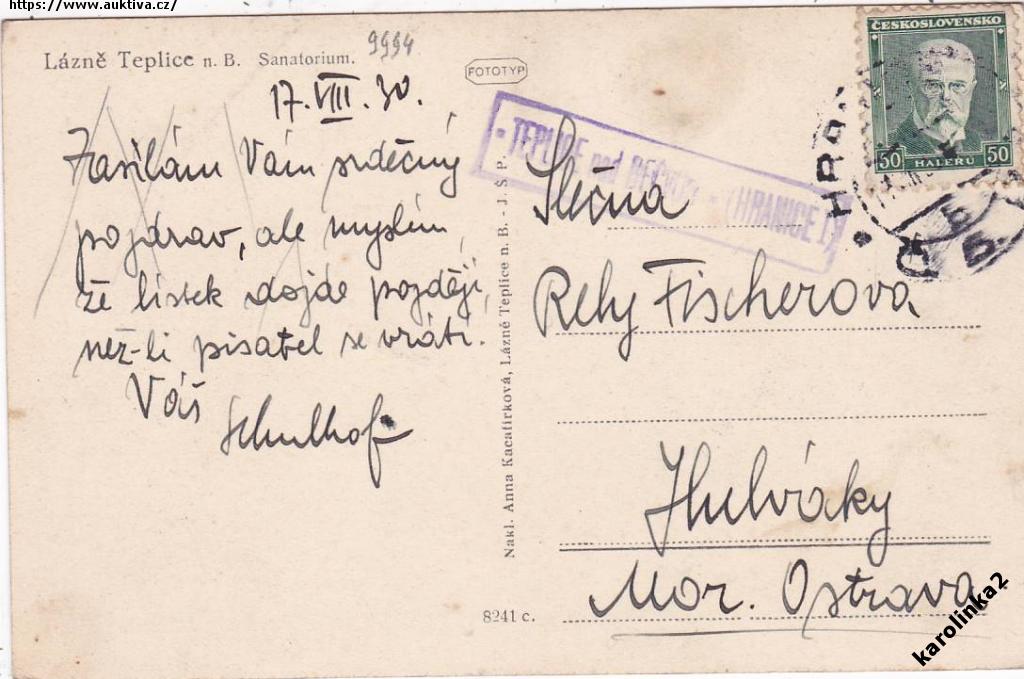 https://www.auktiva.cz/
Lázně Teplice n. B. Sanatorium.
9994
FOTOTYP
17. VIII. 30.
Zasílám Vám srdečný
pozdrav, ale myslím,
že lístek dojde později,
než-li pisatel se vrátí.
Váš
Schulhof
Nakl. Anna Kacafírková, Lázně Teplice n. B. - J. Š. P.
8241 c.
TEPLICE nad BEČVOU - (HRANICE I)
ČESKOSLOVENSKO
50 HALÉŘŮ 50
Slečna
Fischerova
Hulváky
Mor. Ostrava
karolinka2